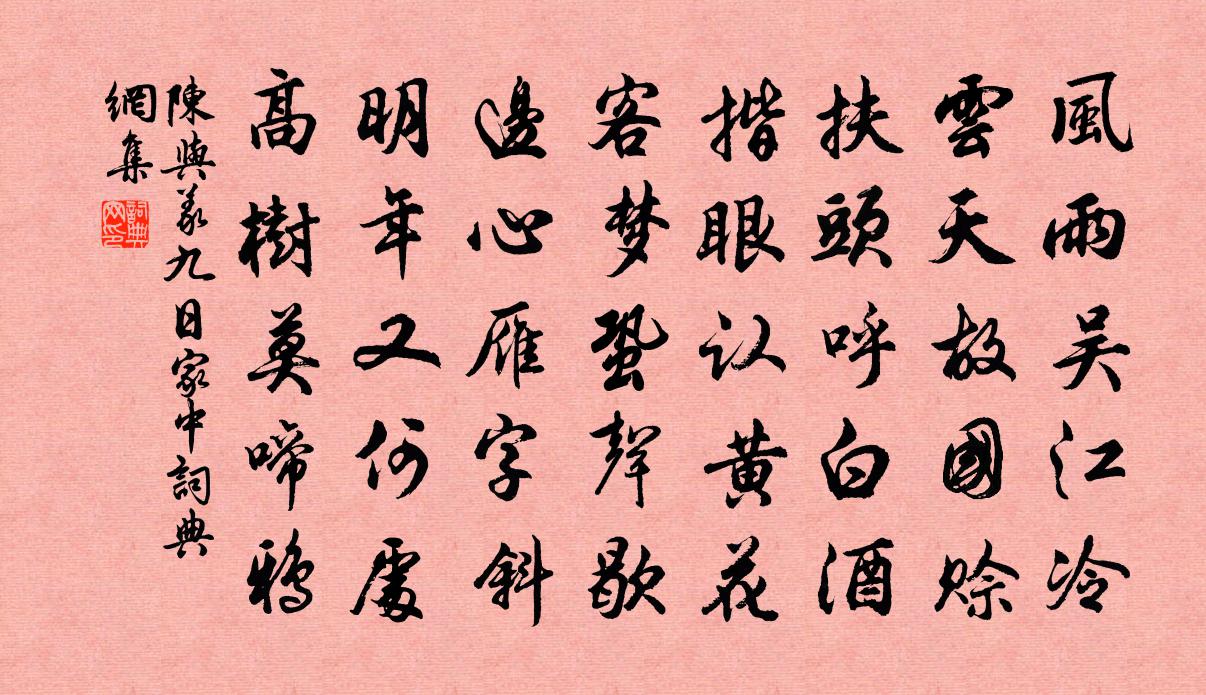 風雨吴江冷
雲天故國赊
扶頭呼白酒
揩眼认黄花
客梦蛩聲歇
邊心雁字斜
明年又何處
高樹莫啼鸦
陳與義九日家中詞典
網集
詞典網印